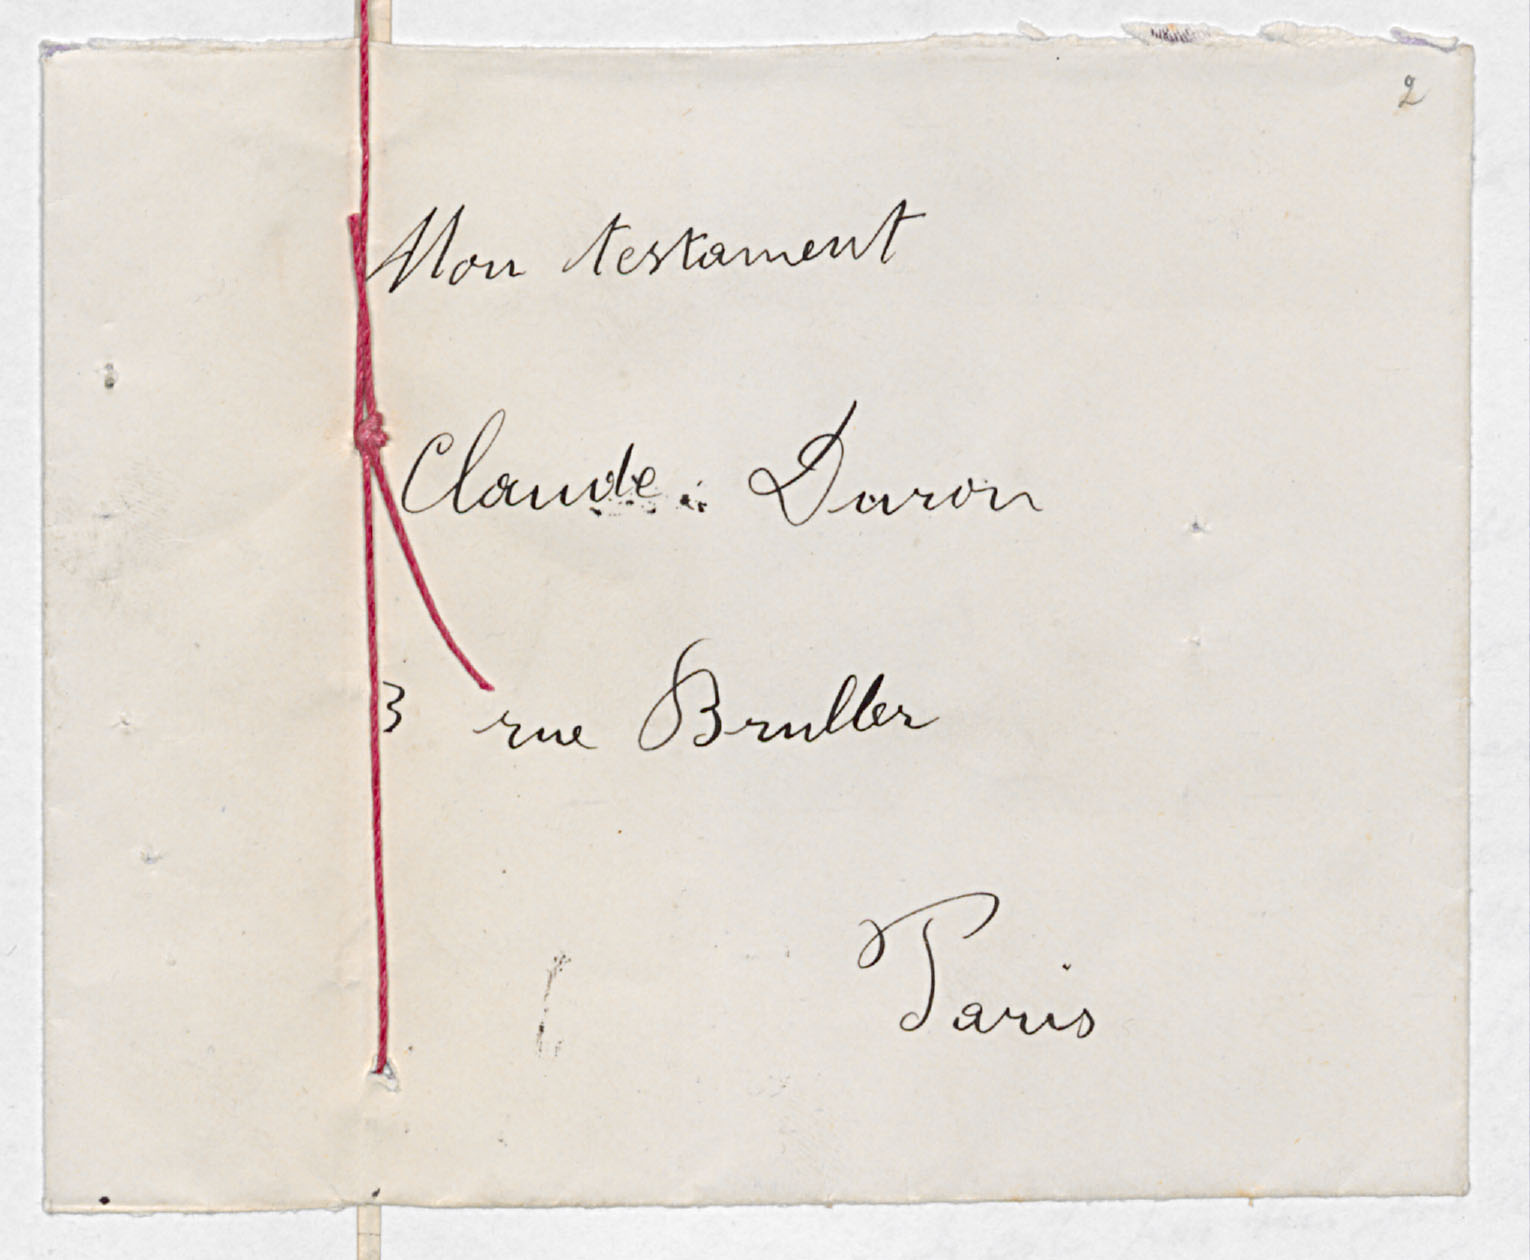 2
Mon testament
Claude Duron
3 rue Bruller
Paris